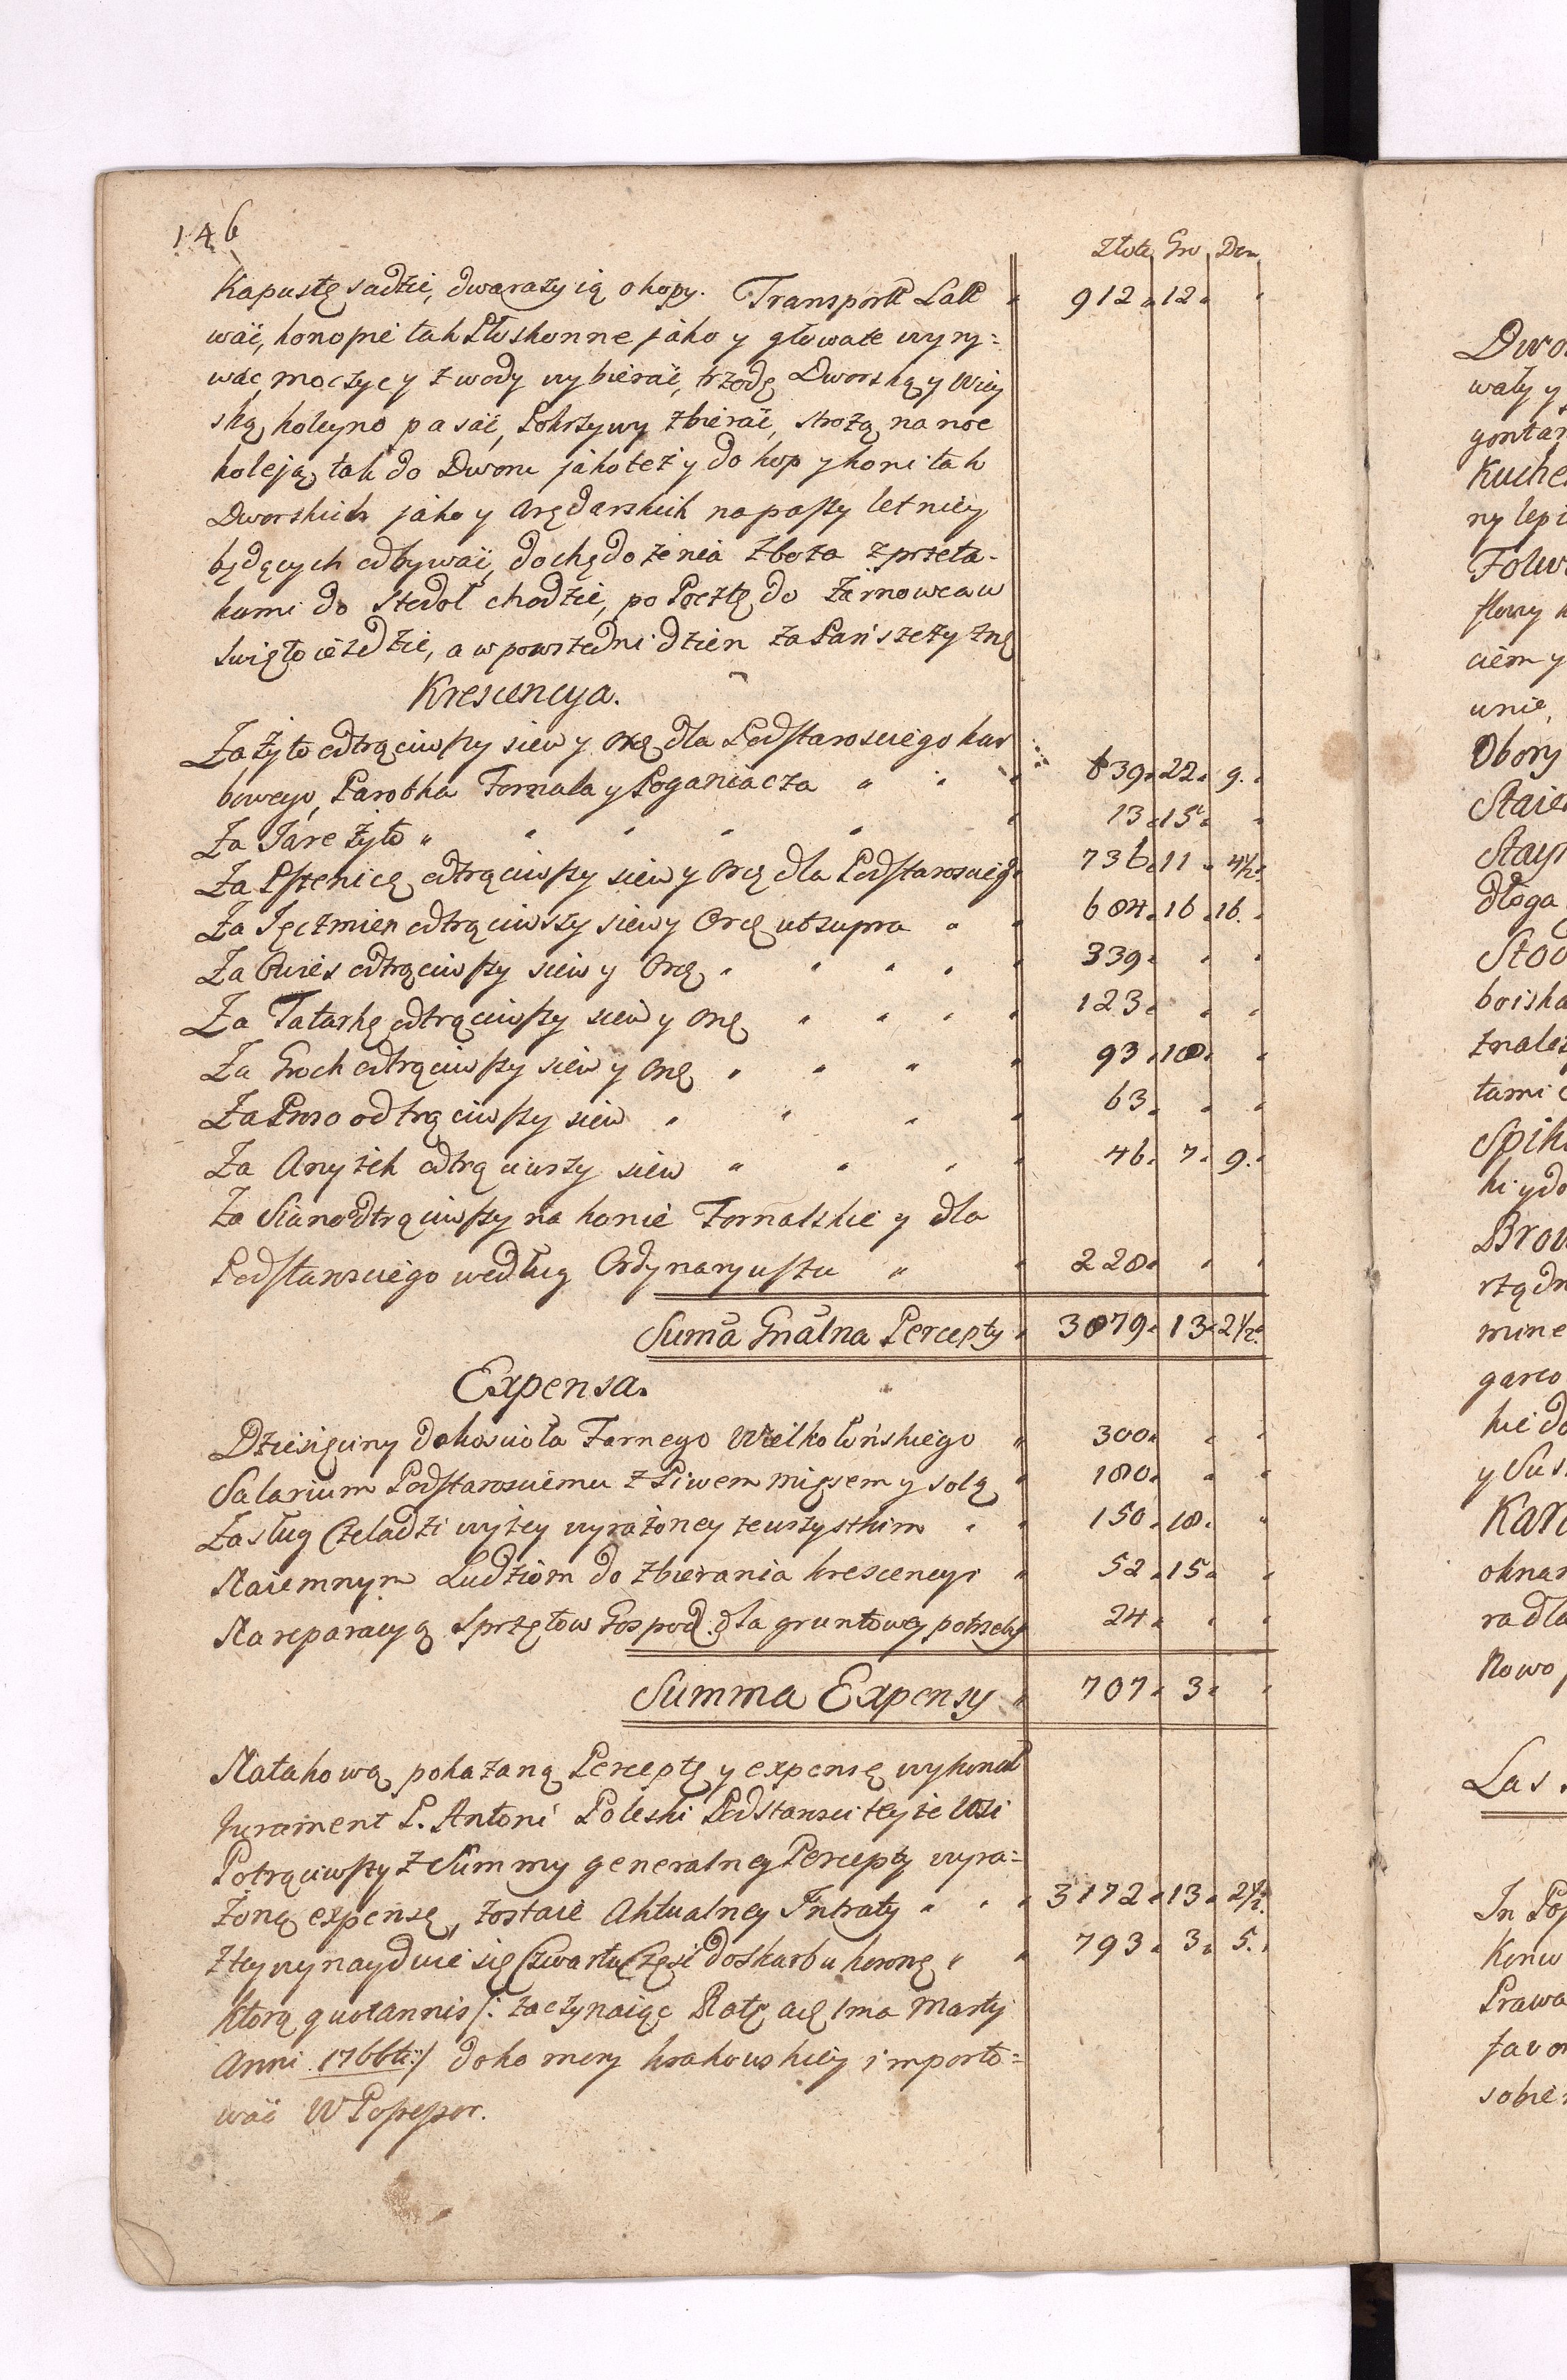 146
Złote Gro Den
Kapustę sadzić, dwarazy ią okopy. Transport Latt 912 12
wać, konopie tak Płoskonne jako y głowate wyry=
wać, moczyc y z wody wybierać, trzodę Dworską y Wiey
ską koleyno pasać, Pokrzywy zbierać, strożą na noc
koleją tak do Dworu jakoteż y do kop y koni tak
Dworskich jako y Arędarskich na paszy letniey
będących odbywać, do chędożenia zboża z przeta-
kami do Stodoł chodzić, po Pocztę do Żarnowca w
Swięto ieździć, a w powszedni dzien za Pańszczyznę
Krescencya.
Za Żyto odtrąciwszy siew y Orę dla Podstarosciego kar
bowego, Parobka Fornala y Poganiacza 839 22 9.
Za Jare żyto 13 15
Za Pszenicę odtrąciwszy siew y Orę dla Podstarosciego 736 11 4½
Za Jęczmien odtrąciwszy siew y Orę ut supra 684 16 16.
Za Owies odtrąciwszy siew y Orę 339
Za Tatarkę odtrąciwszy siew y Orę 123
Za Groch odtrąciwszy siew y Orę 93 18
Za Proso odtrąciwszy siew 63
Za Anyżek odtrąciwszy siew 46 7 9.
Za Siano odtrąciwszy na konie Fornalskie y dla
Podstarosciego według Ordynaryuszu 228
Suma Gnalna Percepty 3879 13 2½
Expensa.
Dziesięciny do kościoła Farnego Wielkołońskiego 300
Salarium Podstarosciemu z Piwem mięsem y solą 180
Zasług Czeladzi wyżey wyrażoney ze wszystkim 150 18
Naiemnym Ludziom do zbierania krescencyi 52 15
Na reparacyą Sprzętow Gospod. dla gruntowey potrzeby 24
Summa Expensy 707 3
Na takową pokazaną Perceptę y expensę wykonał
Jurament P. Antoni Poleski Podstarosci teyże Wsi
Potrąciwszy z Summy generalney Percepty wyra=
żoną expensę, zostaie Aktualney Intraty 3172 13 2½
z tey wynayduie się Czwarta Częsć do Skarbu koronę 793 3 5.
ktorą quotannis /: zaczynaiąc Ratę a 1ma Martij
Anni 1766ti :/ do komory krakowskiey importo=
wać W Possessor.